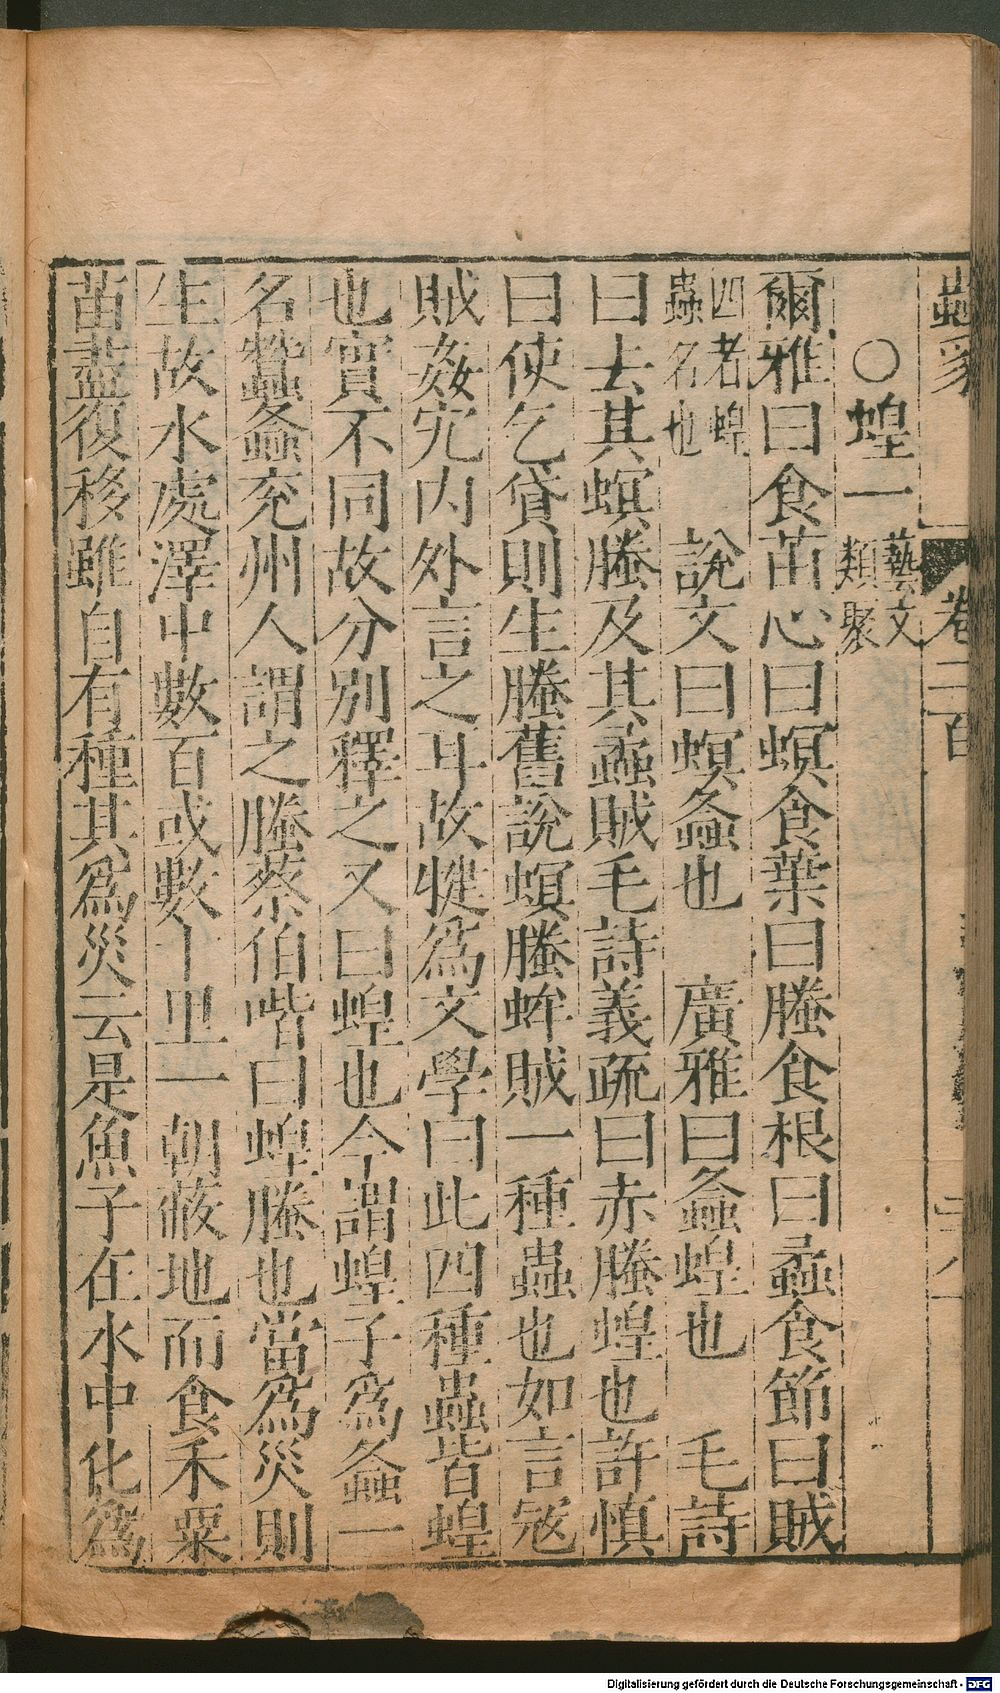 蟲豸 卷二百
〇蝗一 藝文類聚
爾雅曰食苗心曰螟食葉曰螣食根曰蟊食節曰賊
四者蝗蟲名也 說文曰螟螽也 廣雅曰螽蝗也 毛詩
曰去其螟螣及其蟊賊毛詩義疏曰赤螣蝗也許慎
曰使乞貸則生螣舊說螟螣蛑賊一種蟲也如言寇
賊姦宄内外言之耳故犍爲文學曰此四種蟲皆蝗
也實不同故分別釋之又曰蝗也今謂蝗子爲螽一
名蠜螽兖州人謂之螣蔡伯喈曰蝗螣也當爲災則
生故水處澤中數百或數十里一朝蔽地而食禾粟
苗盡復移雖自有種其爲災云是魚子在水中化爲
Digitalisierung gefördert durch die Deutsche Forschungsgemeinschaft - DFG